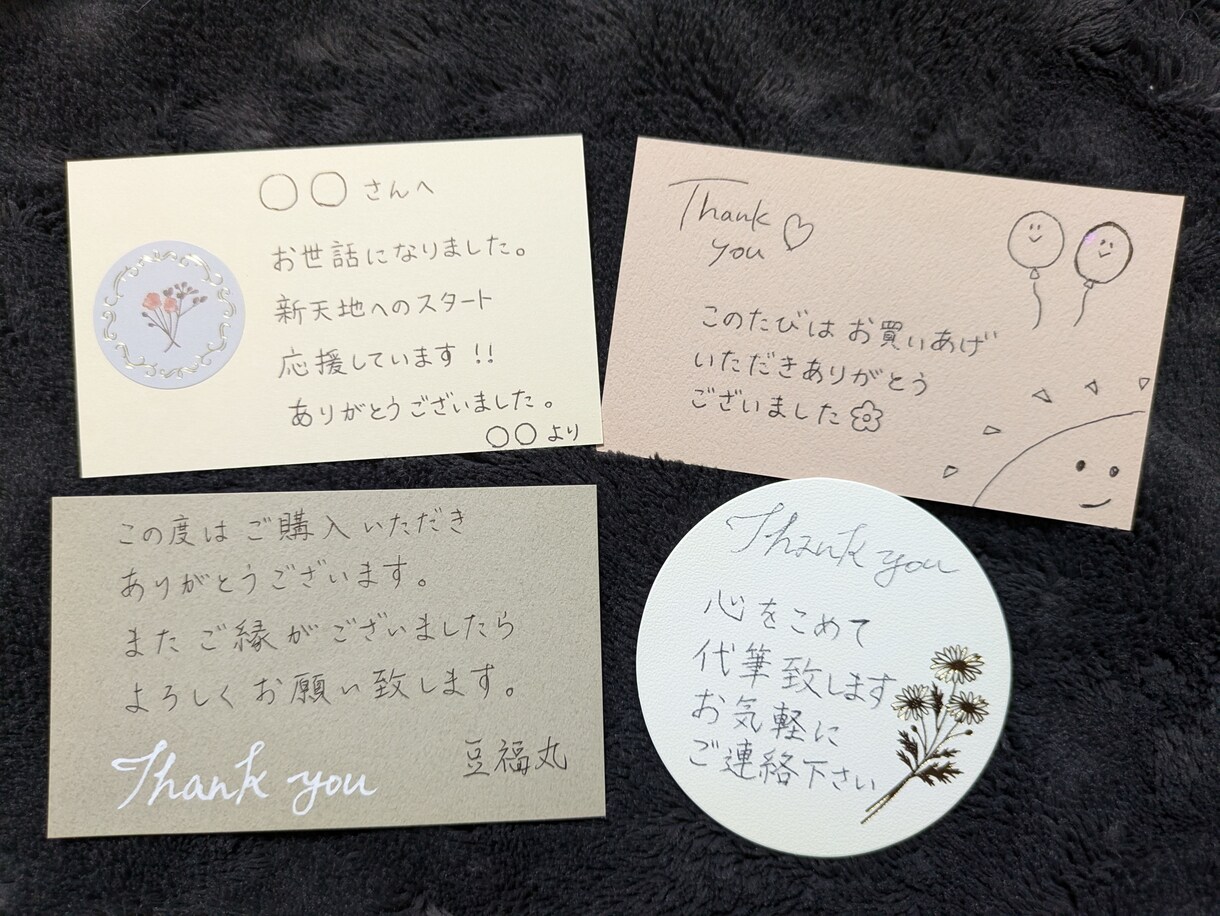 ○○さんへ
お世話になりました。
新天地へのスタート
応援しています!!
ありがとうございました。
○○より
Thank
you
このたびは お買いあげ
いただきありがとう
ございました
この度は ご購入いただき
ありがとうございます。
また ご縁がございましたら
よろしくお願い致します。
Thank you
豆福丸
Thank you
心をこめて
代筆致します
お気軽に
ご連絡下さい